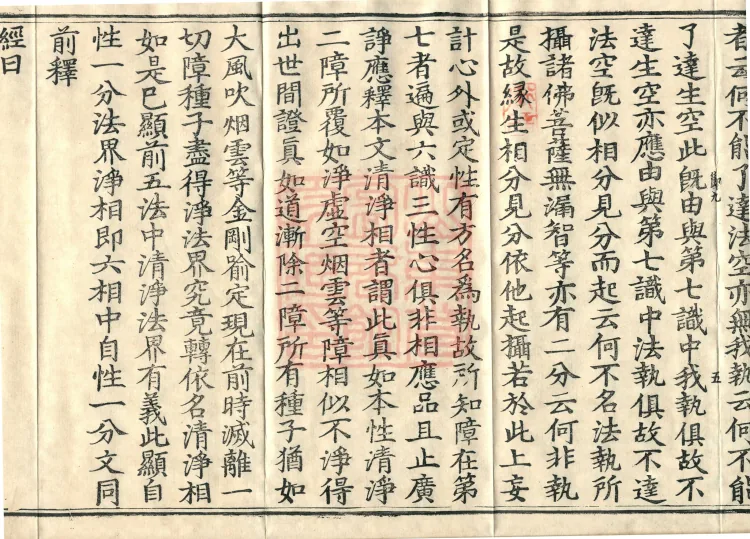 者云何不能了達法空亦無我執云何不能
了達生空此既由與第七識中我執俱故不
達生空亦應由與第七識中法執俱故不達
法空既似相分見分而起云何不名法執所
攝諸佛菩薩無漏智等亦有二分云何非執
是故緣生相分見分依他起攝若於此上妄
計心外或定性有方名為執故所知障在第
七者遍與六識三性心俱非相應品且止廣
諍應釋本文清淨相者謂此真如本性清淨
二障所覆如淨虛空烟雲等障相似不淨得
出世間證真如道漸除二障所有種子猶如
大風吹烟雲等金剛喻定現在前時滅離一
切障種子盡得淨法界究竟轉依名清淨相
如是已顯前五法中清淨法界有義此顯自
性一分法界淨相即六相中自性一分文同
前釋
經曰
五